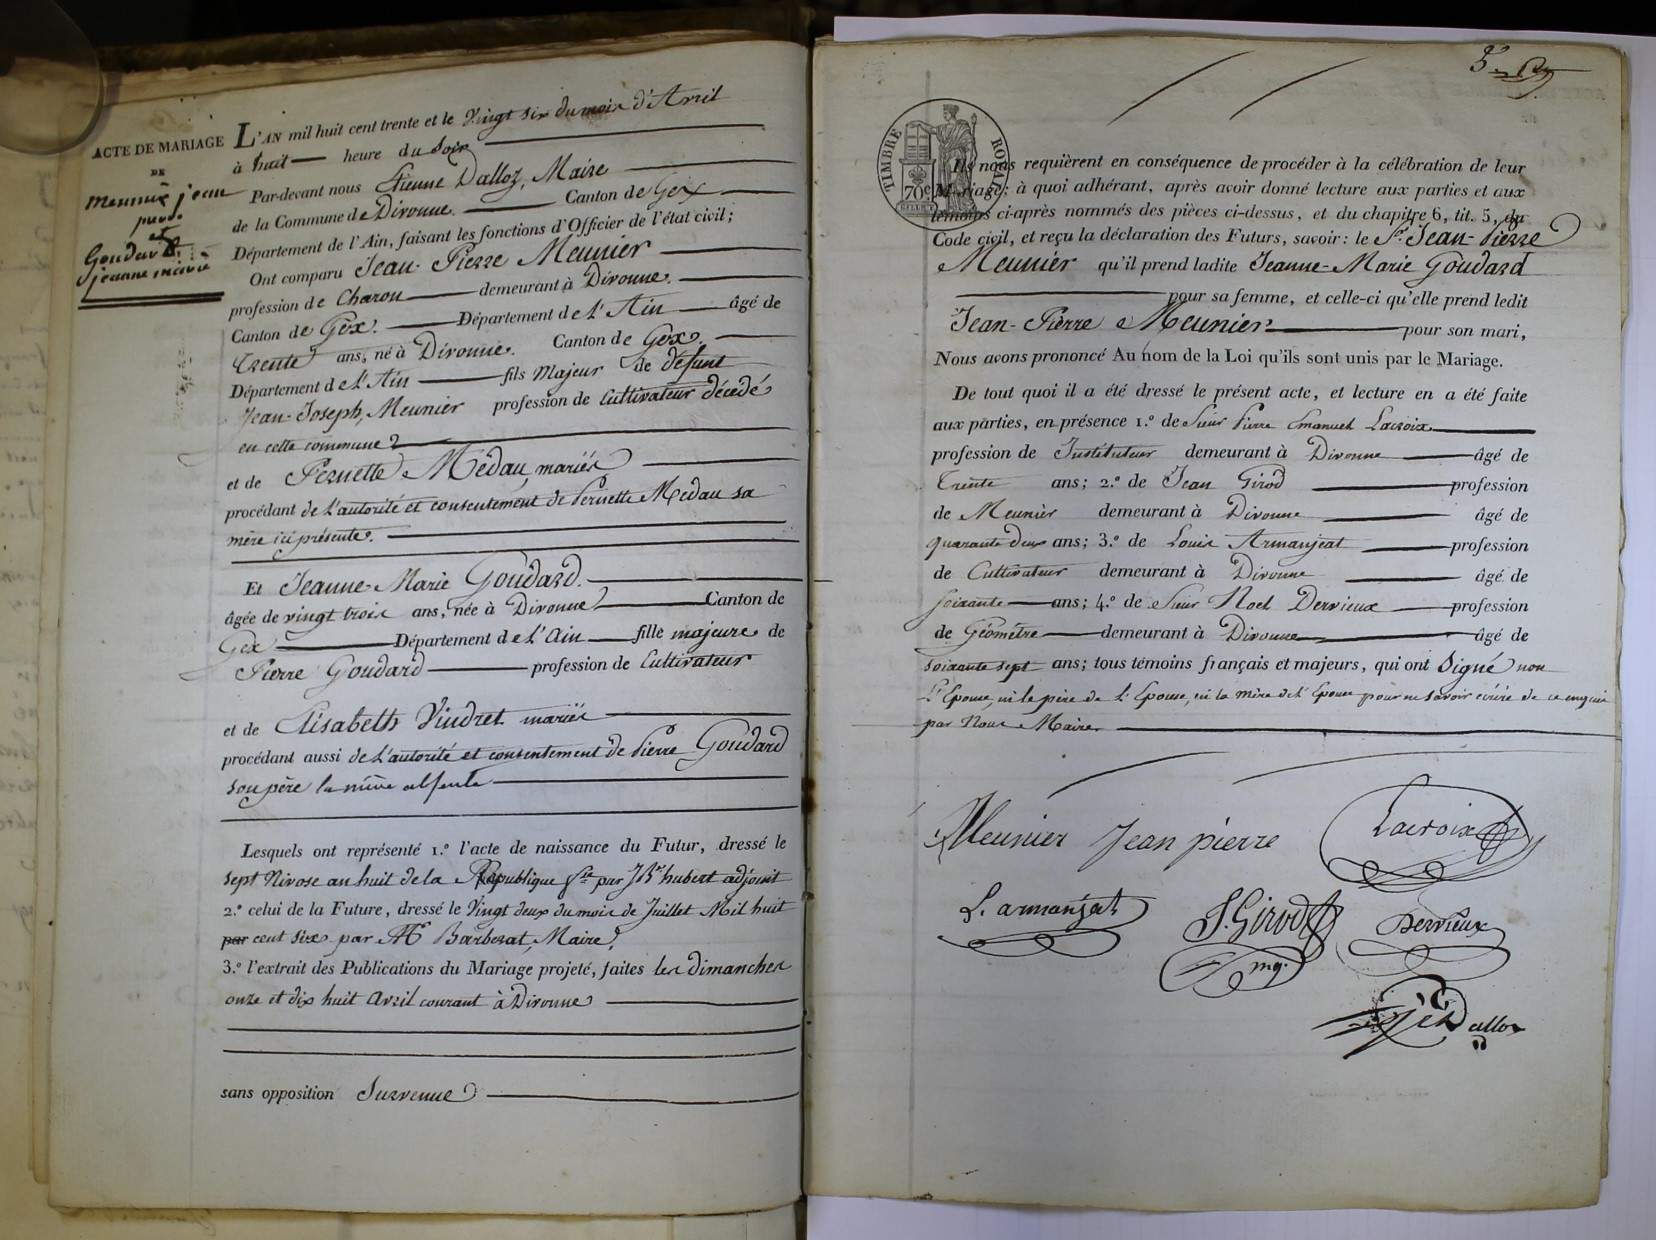 ACTE DE MARIAGE
DE
Meunier jean
pierre
et
Goudard
jeanne marie
L'AN mil huit cent trente et le Vingt six du mois d'Avril
à huit heure du Soir
Par-devant nous Etienne Dalloz, Maire
de la Commune de Divonne. Canton de Gex
Département de l'Ain, faisant les fonctions d'Officier de l'état civil;
Ont comparu Jean-Pierre Meunier
profession de Charon demeurant à Divonne.
Canton de Gex. Département de l'Ain âgé de
trente ans, né à Divonne. Canton de Gex.
Département de l'Ain fils Majeur de défunt
Jean-Joseph, Meunier profession de Cultivateur décédé
en cette commune
et de Pernette Medau, mariés
procédant de l'autorité et consentement de Pernette Medau sa
mère ici présente.
Et Jeanne-Marie Goudard.
âgée de vingt trois ans, née à Divonne Canton de
Gex Département de l'Ain fille majeure de
Pierre Goudard profession de Cultivateur
et de Elisabeth Vindret mariés
procédant aussi de l'autorité et consentement de Pierre Goudard
son père la mère absente
Lesquels ont représenté 1.º l'acte de naissance du Futur, dressé le
sept Nivose an huit de la République fse par J Bte hubert adjoint
2.º celui de la Future, dressé le Vingt deux du mois de Juillet Mil huit
par cent six par Mr Barberat, Maire,
3.º l'extrait des Publications du Mariage projeté, faites les dimanches
onze et dix huit Avril courant à Divonne
sans opposition Survenue
5
TIMBRE ROYAL
70c
Ils nous requièrent en conséquence de procéder à la célébration de leur
Mariage: à quoi adhérant, après avoir donné lecture aux parties et aux
témoins ci-après nommés des pièces ci-dessus, et du chapitre 6, tit. 5, du
Code civil, et reçu la déclaration des Futurs, savoir: le Sr. Jean-Pierre
Meunier qu'il prend ladite Jeanne-Marie Goudard
pour sa femme, et celle-ci qu'elle prend ledit
Jean-Pierre Meunier pour son mari,
Nous avons prononcé Au nom de la Loi qu'ils sont unis par le Mariage.
De tout quoi il a été dressé le présent acte, et lecture en a été faite
aux parties, en présence 1.º de Sieur Pierre Emanuel Lacroix
profession de Instituteur demeurant à Divonne âgé de
Trente ans; 2.º de Jean Girod profession
de Meunier demeurant à Divonne âgé de
quarante deux ans; 3.º de Louis Armanjeat profession
de Cultivateur demeurant à Divonne âgé de
soixante ans; 4.º de Sieur Noel Dervieux profession
de Géometre demeurant à Divonne âgé de
soixante sept ans; tous témoins français et majeurs, qui ont Signé non
L'Epouse, ni le père de l'Epouse, ni la mère de l'Epoux pour ne savoir écrire de ce enquis
par Nous Maire
Meunier Jean pierre
Lacroix
L. armanjat
J. Girod
mg.
Dervieux
Dalloz